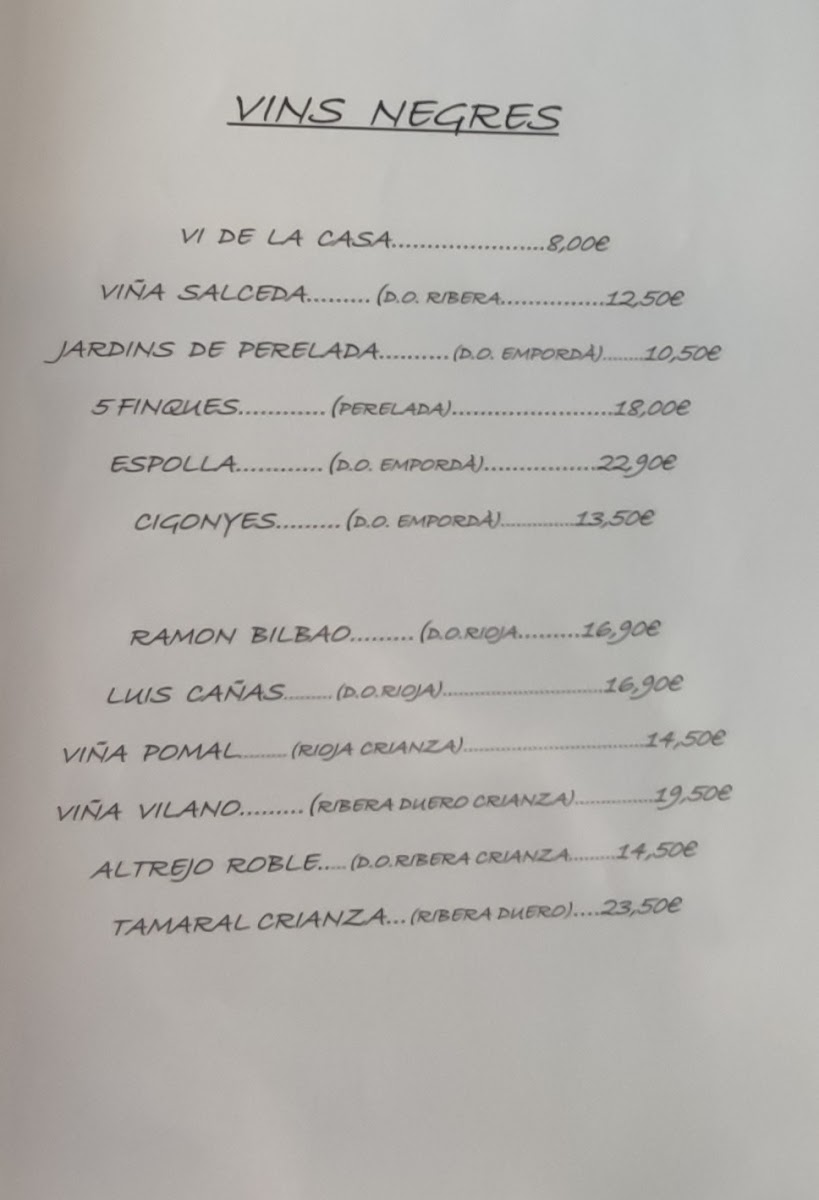 VINS NEGRES
VI DE LA CASA......................8,00€
VIÑA SALCEDA.........(D.O. RIBERA...............12,50€
JARDINS DE PERELADA..........(D.O. EMPORDÀ)........10,50€
5 FINQUES............(PERELADA).......................18,00€
ESPOLLA............(D.O. EMPORDÀ)................22,90€
CIGONYES.........(D.O. EMPORDÀ)..............13,50€
RAMON BILBAO.........(D.O.RIOJA.........16,90€
LUIS CAÑAS.........(D.O.RIOJA)..............................16,90€
VIÑA POMAL.........(RIOJA CRIANZA)..................................14,50€
VIÑA VILANO.........(RIBERA DUERO CRIANZA)...............19,50€
ALTREJO ROBLE.....(D.O.RIBERA CRIANZA.........14,50€
TAMARAL CRIANZA...(RIBERA DUERO)....23,50€